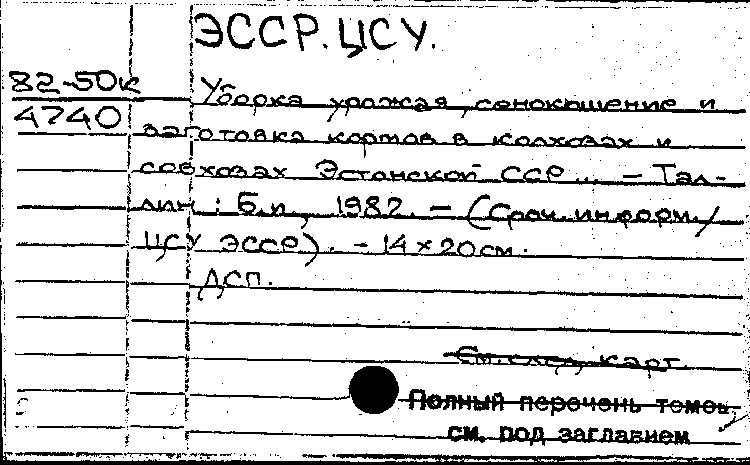 ЭССР. ЦСУ.
82-50к
4740
Уборка урожая, сенокошение и
заготовка кормов в колхозах и
совхозах Эстонской ССР... — Тал-
лин : Б.и., 1982. — (Сроч. информ. /
ЦСУ ЭССР). - 14 x 20 см.
ДСП.
См. след. карт.
Полный перечень томов
см. под заглавием